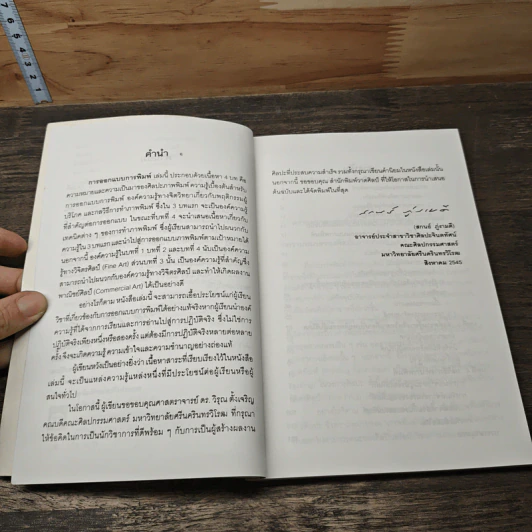 คำนำ
การออกแบบการพิมพ์ เล่มนี้ ประกอบด้วยเนื้อหา 4 บท คือ
ความหมายและความเป็นมาของศิลปะภาพพิมพ์ ความรู้เบื้องต้นสำหรับ
การออกแบบการพิมพ์ องค์ความรู้ทางจิตวิทยาเกี่ยวกับพฤติกรรมผู้
บริโภค และกลวิธีการทำภาพพิมพ์ ซึ่งใน 3 บทแรก จะเป็นองค์ความรู้
ที่สำคัญต่อการออกแบบ ในขณะที่บทที่ 4 จะนำเสนอเนื้อหาเกี่ยวกับ
เทคนิคต่าง ๆ ของการทำภาพพิมพ์ ซึ่งผู้เรียนสามารถนำไปผนวกกับ
ความรู้ใน 3 บทแรกและนำไปสู่การออกแบบภาพพิมพ์ตามเป้าหมายได้
นอกจากนี้ องค์ความรู้ในบทที่ 1 บทที่ 2 และบทที่ 4 นับเป็นองค์ความ
รู้ทางวิจิตรศิลป์ (Fine Art) ส่วนบทที่ 3 นั้น เป็นองค์ความรู้ที่สำคัญซึ่ง
สามารถนำไปผนวกกับองค์ความรู้ทางวิจิตรศิลป์ และทำให้เกิดผลงาน
พาณิชย์ศิลป์ (Commercial Art) ได้เป็นอย่างดี
อย่างไรก็ตาม หนังสือเล่มนี้ จะสามารถเอื้อประโยชน์แก่ผู้เรียน
วิชาที่เกี่ยวข้องกับการออกแบบการพิมพ์ได้อย่างแท้จริงหากผู้เรียนนำองค์
ความรู้ที่ได้จากการเรียนและการอ่านไปสู่การปฏิบัติจริง ซึ่งไม่ใช่การ
ปฏิบัติจริงเพียงหนึ่งหรือสองครั้ง แต่ต้องมีการปฏิบัติจริงหลายต่อหลาย
ครั้ง จึงจะเกิดความรู้ ความเข้าใจและความชำนาญอย่างถ่องแท้
ผู้เขียนหวังเป็นอย่างยิ่งว่า เนื้อหาสาระที่เรียบเรียงไว้ในหนังสือ
เล่มนี้ จะเป็นแหล่งความรู้แหล่งหนึ่งที่มีประโยชน์ต่อผู้เรียนหรือผู้
สนใจทั่วไป
ในโอกาสนี้ ผู้เขียนขอขอบคุณศาสตราจารย์ ดร. วิรุณ ตั้งเจริญ
คณบดีคณะศิลปกรรมศาสตร์ มหาวิทยาลัยศรีนครินทรวิโรฒ ที่กรุณา
ให้ข้อคิดในการเป็นนักวิชาการที่ดีพร้อม ๆ กับการเป็นผู้สร้างผลงาน
ศิลปะที่ประสบความสำเร็จ รวมทั้งกรุณาเขียนคำนิยมในหนังสือเล่มนั้น
นอกจากนี้ ขอขอบคุณ สำนักพิมพ์วาดศิลป์ ที่ให้โอกาสในการนำเสนอ
ต้นฉบับและได้จัดพิมพ์ในที่สุด
(สกนธ์ ภู่งามดี)
อาจารย์ประจำสาขาวิชาศิลปะจินตทัศน์
คณะศิลปกรรมศาสตร์
มหาวิทยาลัยศรีนครินทรวิโรฒ
สิงหาคม 2545
7 6 5 4